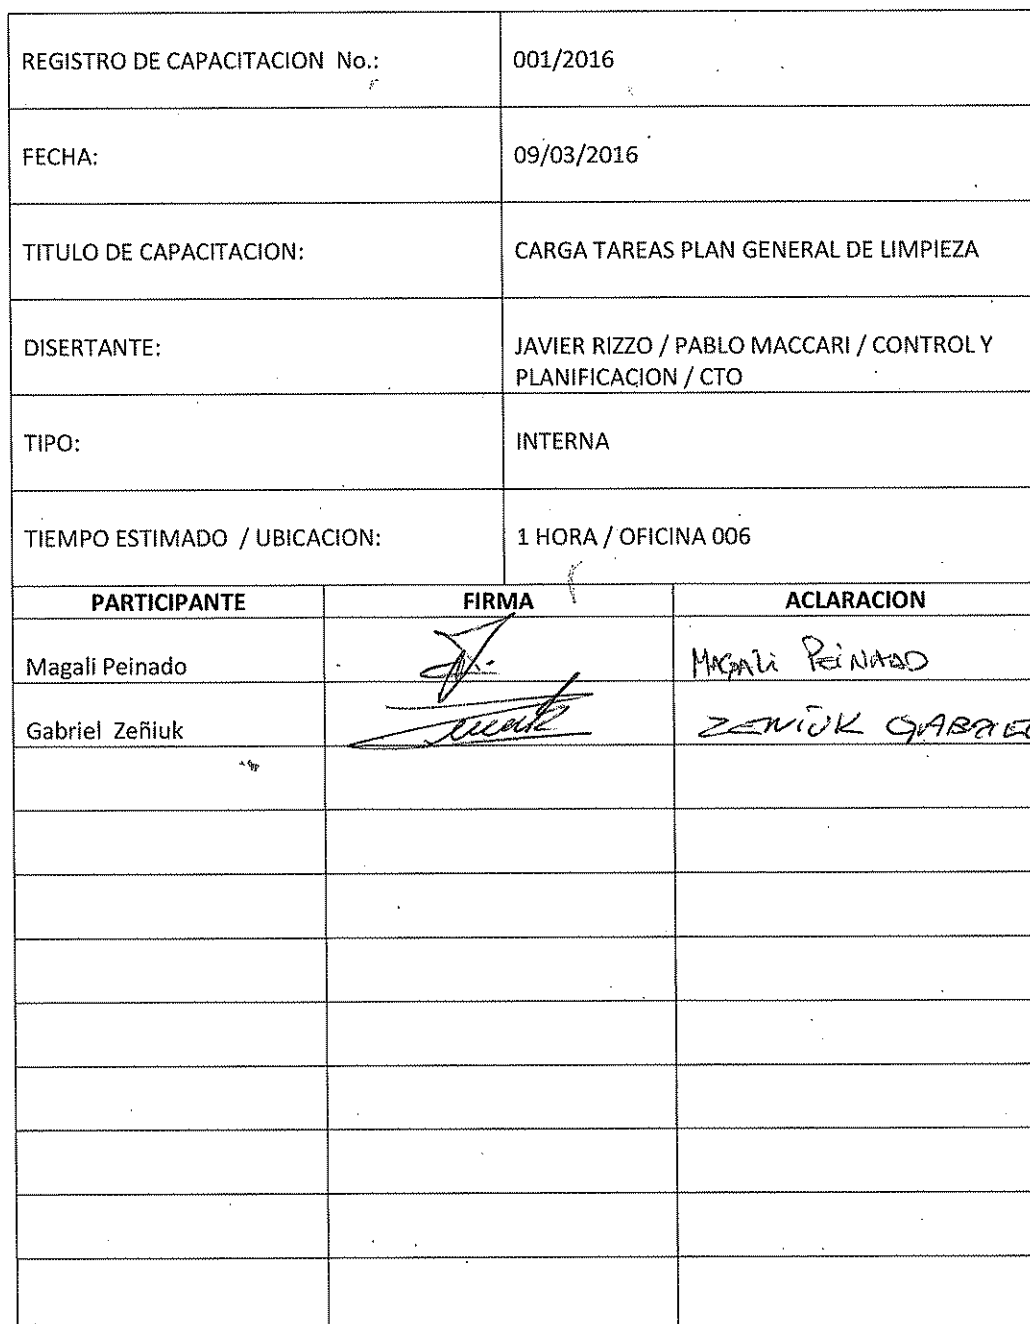 REGISTRO DE CAPACITACION No.: 001/2016
FECHA: 09/03/2016
TITULO DE CAPACITACION: CARGA TAREAS PLAN GENERAL DE LIMPIEZA
DISERTANTE: JAVIER RIZZO / PABLO MACCARI / CONTROL Y
PLANIFICACION / CTO
TIPO: INTERNA
TIEMPO ESTIMADO / UBICACION: 1 HORA / OFICINA 006
PARTICIPANTE FIRMA ACLARACION
Magali Peinado MAGALI PEINADO
Gabriel Zeñiuk ZENIUK GABRIEL